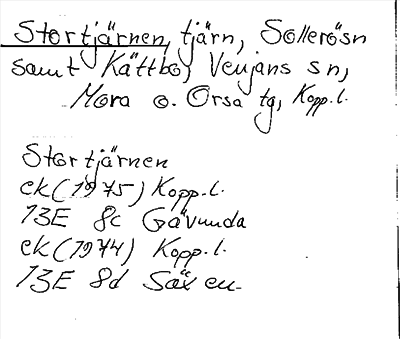 Stortjärnen, tjärn, Sollerösn
samt Kättbo, Venjans sn,
Mora o. Orsa tg, Kopp.l.
Stortjärnen
ek (1975) Kopp.l.
13E 8c Gävunda
ek (1974) Kopp.l.
13E 8d Säxen